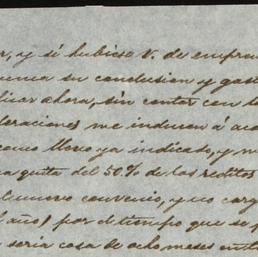 r, y si hubiese V. de empren
su conclusion y gast
licar ahora, sin contar con t
leraciones me inducen á ac
como llevo ya indicado, y m
a quita del 50% de los reditos
nuevo convenio, y no carg
año) por el tiempo que se p
seria cosa de ocho meses